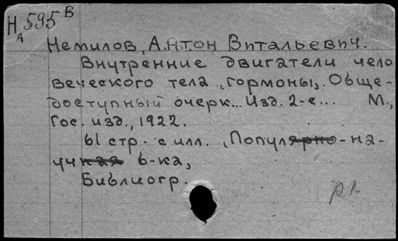 Н 595 В
А
Немилов, Антон Витальевич.
Внутренние двигатели чело
веческого тела „гормоны„. Обще-
доступный очерк... Изд. 2-е... М.,
Гос. изд., 1922.
61 стр. с илл. „Популярно-на-
учная б-ка„
Библиогр.